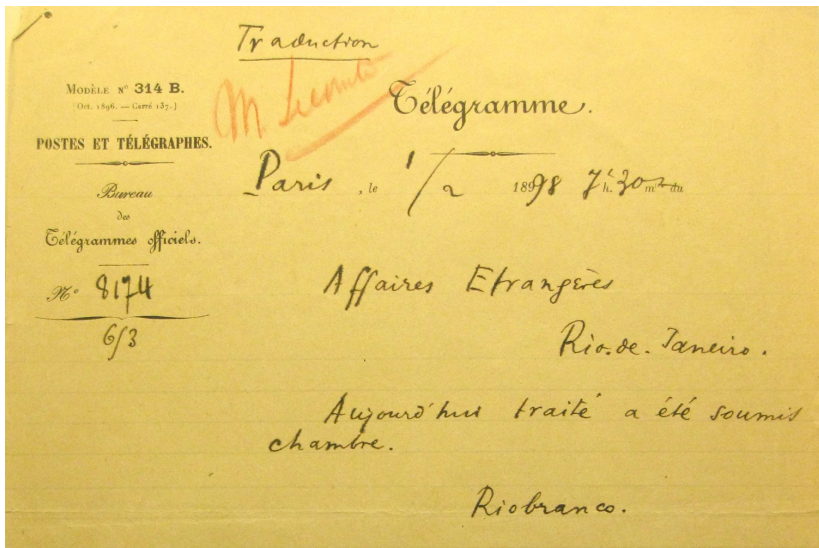 Traduction
M. Lecomte
MODÈLE N° 314 B.
(Oct. 1896. — Carré 137.)
POSTES ET TÉLÉGRAPHES.
Bureau
des
Télégrammes officiels.
N° 8174
6/3
Télégramme.
Paris, le 1/2 1898 7h. 30m du
Affaires Etrangères
Rio. de. Janeiro.
Aujourd'hui traité a été soumis
chambre.
Riobranco.